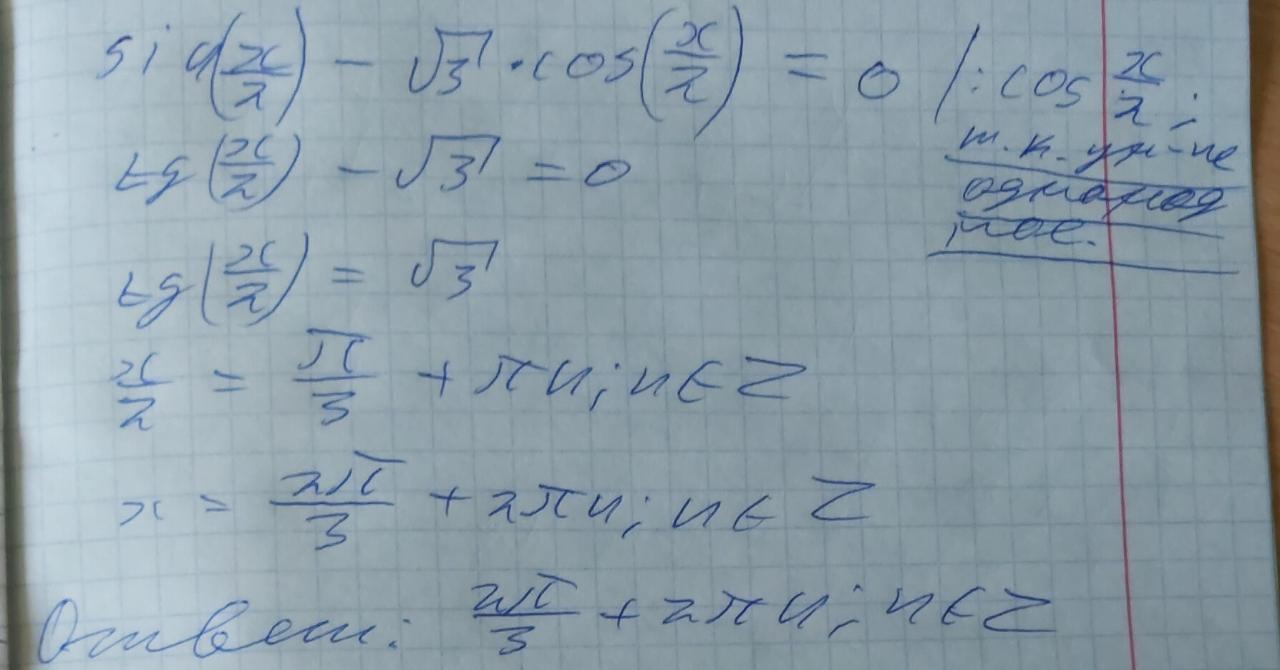 sin(x/2) - √3 · cos(x/2) = 0 /: cos x/2;
т.к. ур-ие
однород
ное.
tg(x/2) - √3 = 0
tg(x/2) = √3
x/2 = π/3 + πn; n ∈ Z
x = 2π/3 + 2πn; n ∈ Z
Ответ: 2π/3 + 2πn; n ∈ Z